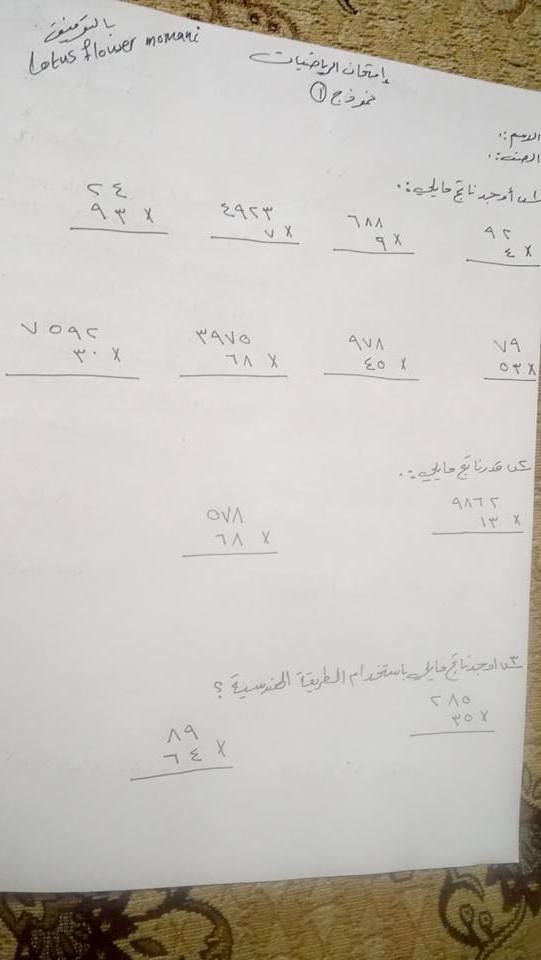 بالتوفيق
Lotus flower momani
إمتحان الرياضيات
نموذج ①
الاسم:.
الصف:.
س١ أوجد ناتج مايلي:.
٩٢ ٦٨٨ ٤٩٢٣ ٢٤
٤ × ٩ × ٧ × ٩٣ ×
٧٩ ٩٧٨ ٣٩٧٥ ٧٥٩٢
٥٣ × ٤٥ × ٦٨ × ٣٠ ×
س٢ قدر ناتج مايلي:.
٩٨٦٢ ٥٧٨
١٣ × ٦٨ ×
س٣ اوجد ناتج مايلي باستخدام الطريقة الهندسية ؟
٢٨٥ ٨٩
٣٥ × ٦٤ ×